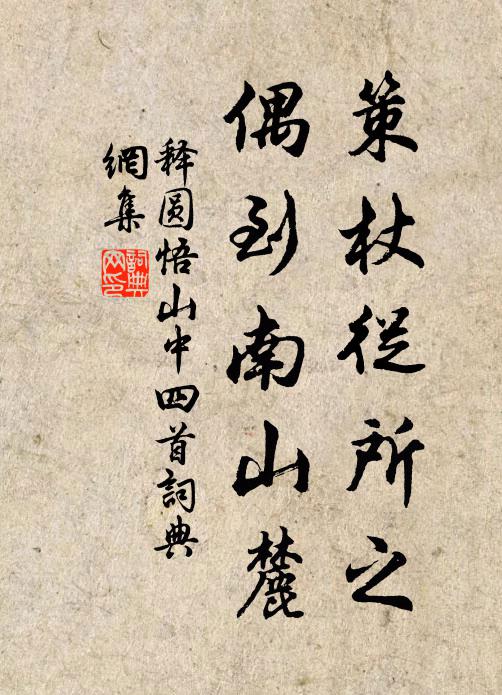 策杖從所之
偶到南山麓
释圆悟山中四首詞典
網集
詞典
网印